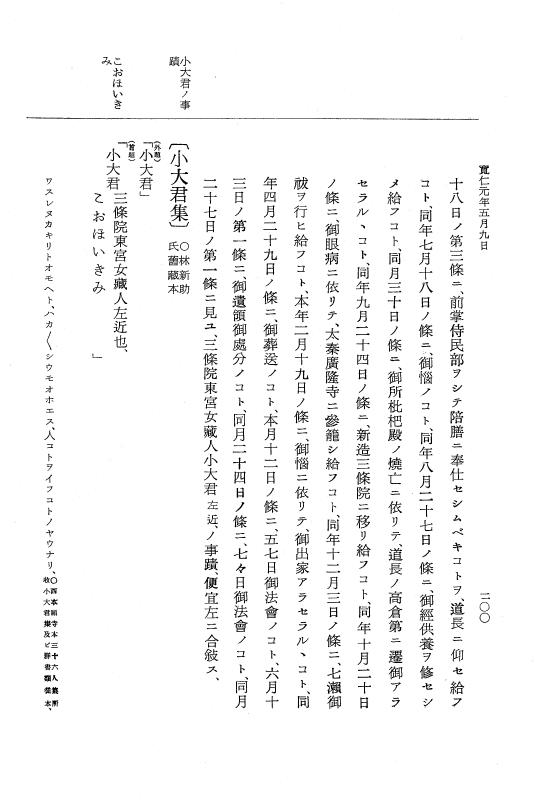 寛仁元年五月九日
二〇〇
十八日ノ第三條ニ、前掌侍民部ヲシテ陪膳ニ奉仕セシムベキコトヲ、道長ニ仰セ給フ
コト、同年七月十八日ノ條ニ、御惱ノコト、同年八月二十七日ノ條ニ、御經供養ヲ修セシ
メ給フコト、同月三十日ノ條ニ、御所枇杷殿ノ燒亡ニ依リテ、道長ノ高倉第ニ遷御アラ
セラルヽコト、同年九月二十四日ノ條ニ、新造三條院ニ移リ給フコト、同年十月二十日
ノ條ニ、御眼病ニ依リテ、太秦廣隆寺ニ參籠シ給フコト、同年十二月三日ノ條ニ、七瀬御
祓ヲ行ヒ給フコト、本年二月十九日ノ條ニ、御惱ニ依リテ、御出家アラセラルヽコト、同
年四月二十九日ノ條ニ、御葬送ノコト、本月十二日ノ條ニ、五七日御法會ノコト、六月十
三日ノ第一條ニ、御遺領御處分ノコト、同月二十四日ノ條ニ、七々日御法會ノコト、同月
二十七日ノ第一條ニ見ユ、三條院東宮女藏人小大君左近、ノ事蹟、便宜左ニ合敍ス、
小大君ノ事
蹟
〔小大君集〕〇林新助
氏舊藏本
(外題)
「小大君」
(首題)
「小大君三條院東宮女藏人左近也、
こおほいきみ」
こおほいき
み
ワスレヌカキリトオモヘト、ハカ〱シウモオホエス、人コトヲイフコトノヤウナリ、〇西本願寺本三十六人集所
收小大君集及ビ群書類從本、